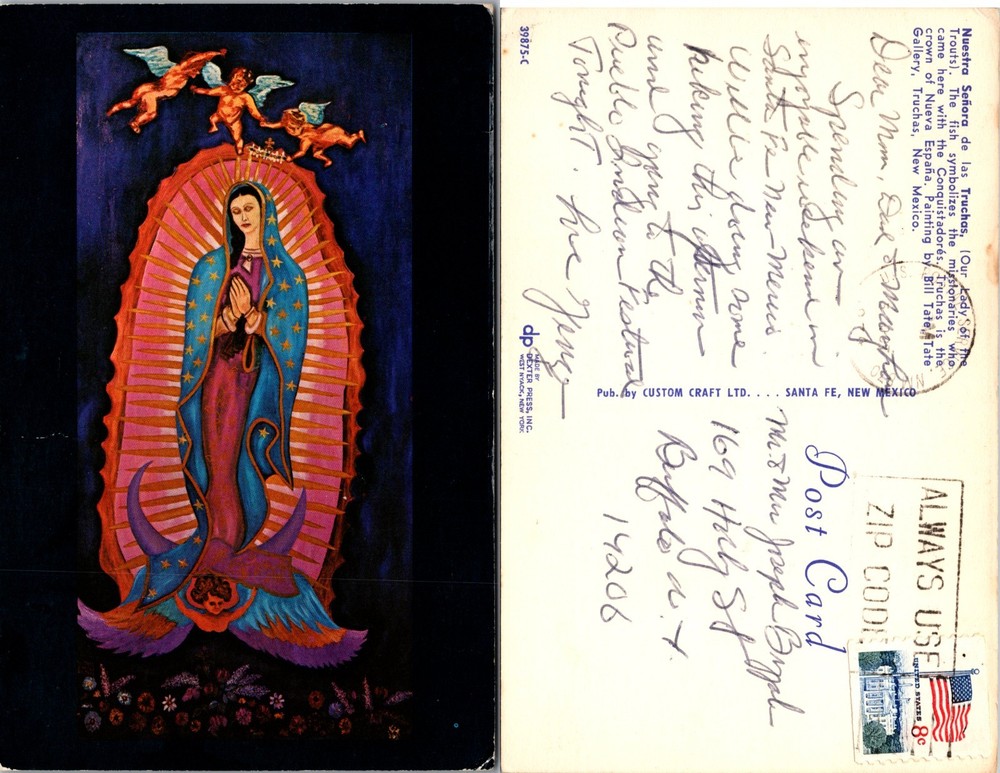 Nuestra Señora de las Truchas, (Our Lady of the
Trouts). The fish symbolizes the missionaries who
came here with the Conquistadores. Truchas is the
crown of Nueva España. Painting by Bill Tate, Tate
Gallery, Truchas, New Mexico.
Dear Mom, Dad &
Spending an
enjoyable weekend in
Santa Fe New Mexico.
Willie doing some
hiking this
and going to the
Pueblo Indian Festival
Tonight. Love
39875-C
dp
MADE BY
DEXTER PRESS, INC.
WEST NYACK, NEW YORK
Pub. by CUSTOM CRAFT LTD. . . . . SANTA FE, NEW MEXICO
Post Card
ALWAYS USE
ZIP CODE
UNITED STATES
8c
Mr & Mrs Joseph
169 Holly St
Buffalo N. Y.
14206